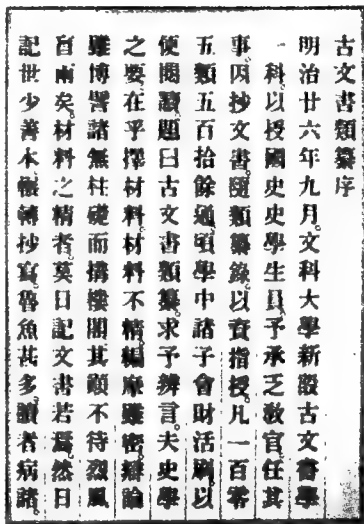 古文書類纂序
明治廿六年九月。文科大學新設古文書學
一科。以授國史史學生員。予承乏教官。任其
事。因抄文書。隨類纂錄。以資指授。凡一百零
五類五百拾餘通。頃學中諸子會財活刷。以
便閱讀。題曰古文書類纂。求予辨言。夫史學
之要。在乎擇材料。材料不精。編摩雖密。辯論
雖博。譬諸無柱礎而搆樓閣。其顛不待烈風
盲雨矣。材料之精者。莫日記文書若焉。然日
記世少善本。轉抄寫。魯魚甚多。讀者病諸。